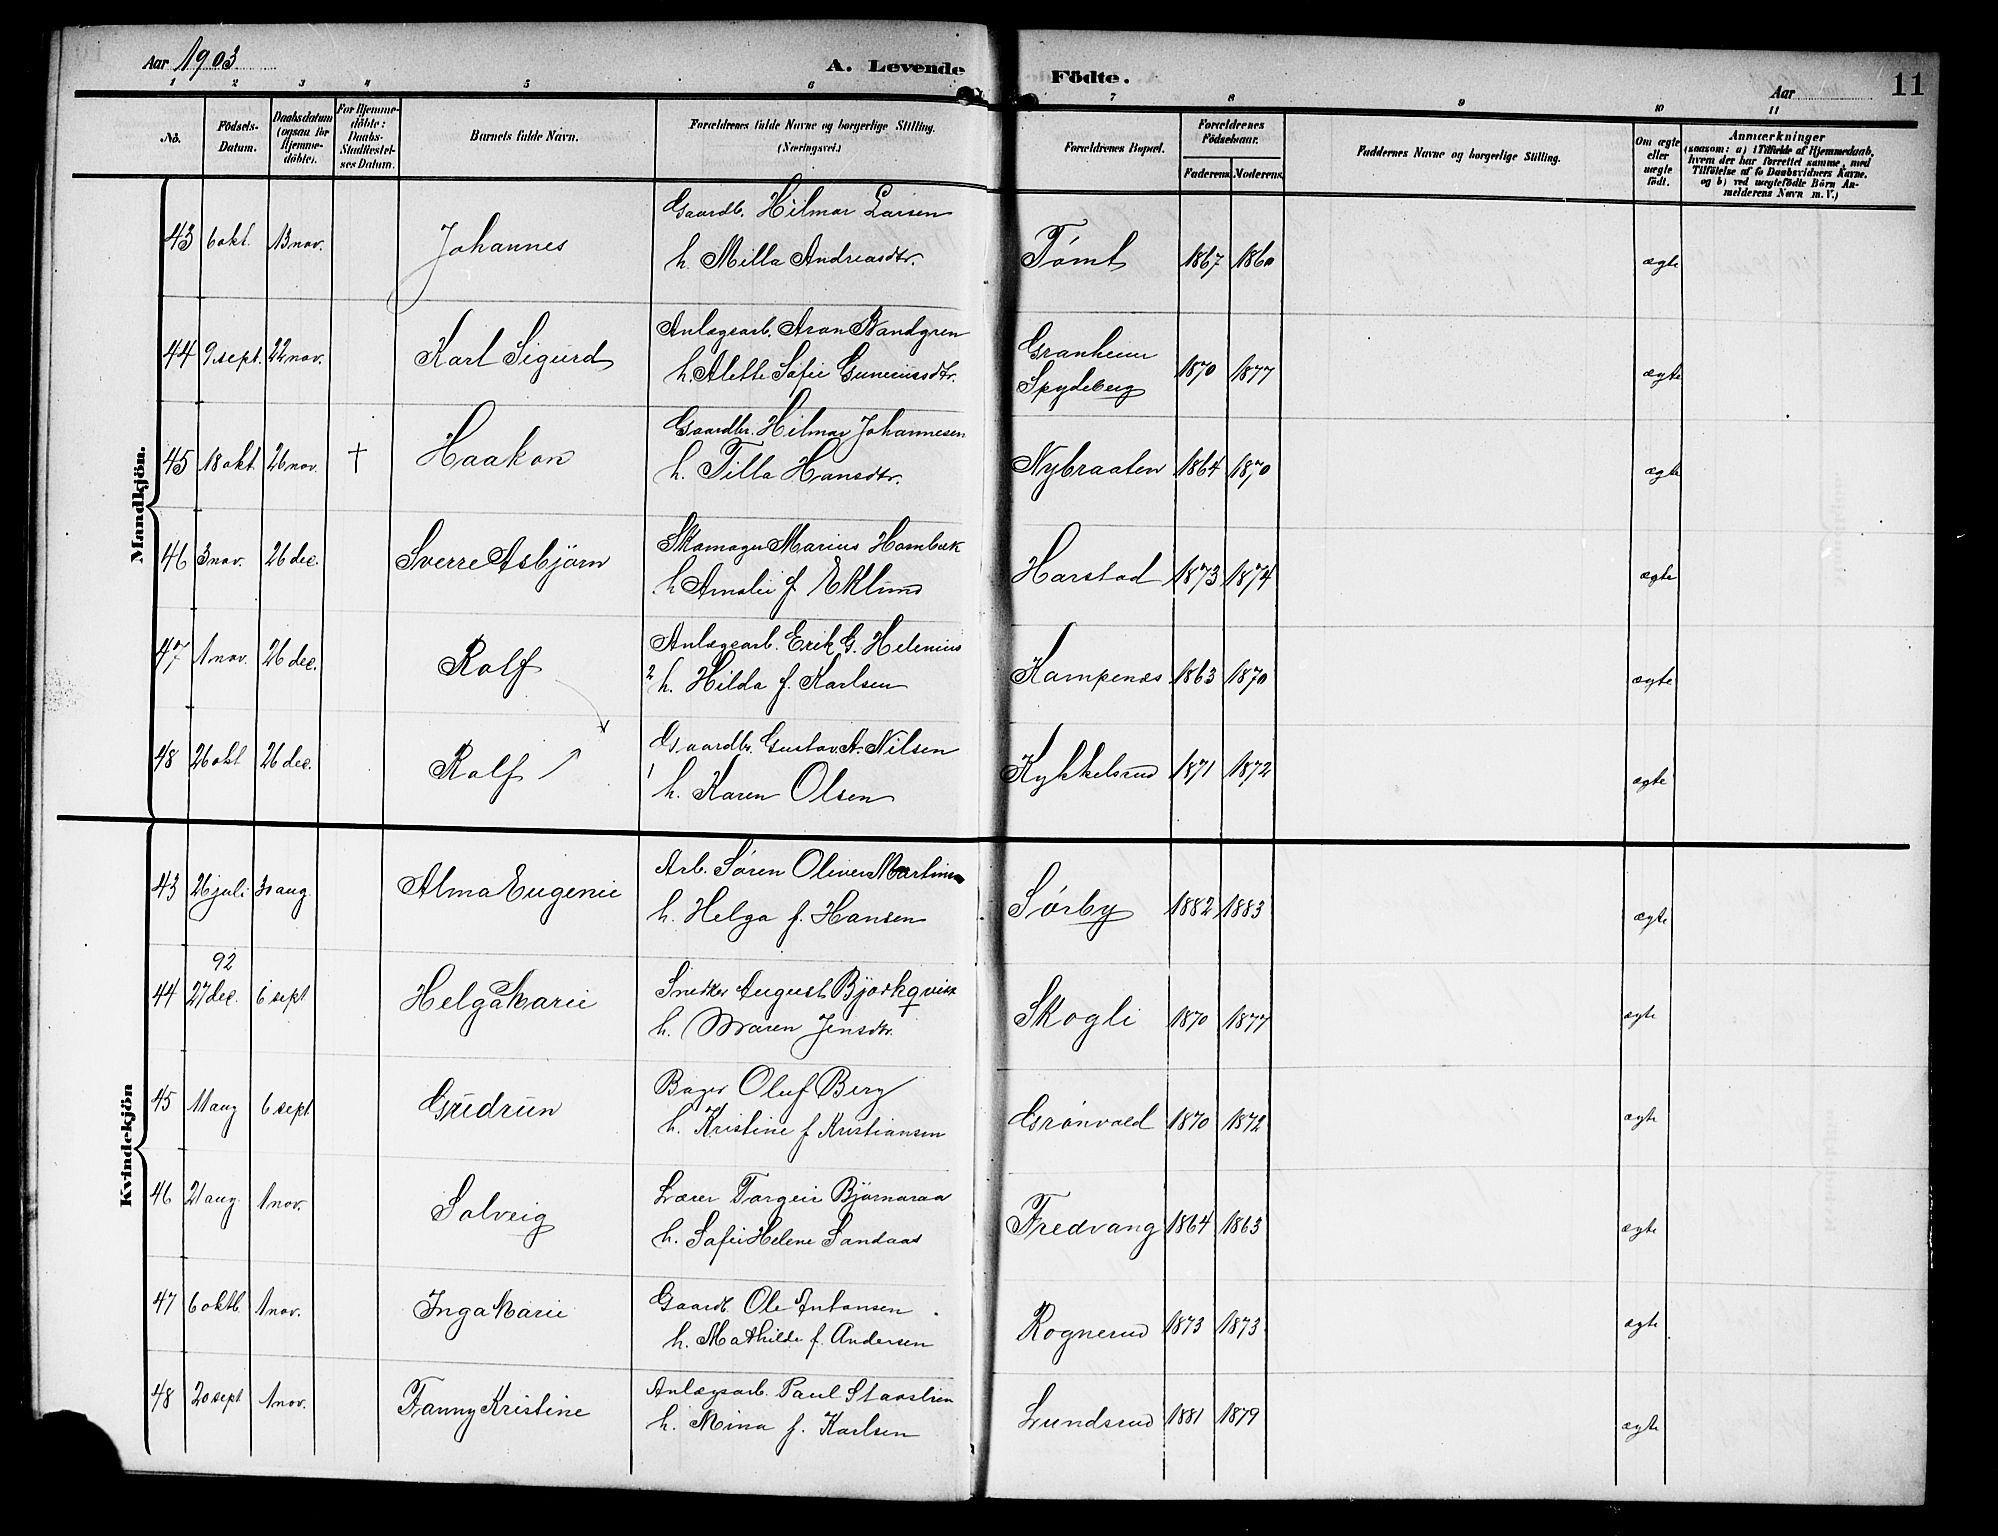 Aar 1903
A. Levende Födte.
Aar
11
1 2 3 4 5 6 7 8 9 10 11
No.
Födsels-Datum.
Daabsdatum (ogsaa for Hjemme-döbte).
For Hjemme-döbte: Daabs-Stadfæstel-ses Datum.
Barnets fulde Navn.
Forældrenes fulde Navne og borgerlige Stilling. (Næringsvei.)
Forældrenes Bopæl.
Forældrenes Födselsaar.
Faderens. Moderens.
Faddernes Navne og borgerlige Stilling.
Om ægte eller uægte födt.
Anmærkninger (saasom: a) i Tilfælde af Hjemmedaab, hvem der har forrettet samme, med Tilföielse af to Daabsvidners Navne, og b) ved uægtefödte Börn An-melderens Navn m. V.)
Mandkjön.
43 6 okt. 13 nov. Johannes Gaardb. Hilmar Larsen
h. Milla Andreasdtr. Tømt 1867 1860 ægte
44 9 sept. 22 nov. Karl Sigurd Anlægsarb. Aron Sandgren
h. Alette Sofie Guneriusdtr. Granheim
Spydeberg 1870 1877 ægte
45 18 okt. 26 nov. † Haakon Gaardbr. Hilmar Johannesen
h. Tilla Hansdtr. Nybraaten 1864 1870 ægte
46 3 nov. 26 dec. Sverre Asbjörn Skomager Marius Hornbæk
h. Amalie f. Eklund Harstad 1873 1874 ægte
47 1 nov. 26 dec. Rolf Anlægsarb. Erik G. Helenius
2 h. Hilda f. Karlsen Kampenæs 1863 1870 ægte
48 26 okt 26 dec. Rolf Gaardbr. Gustav A. Nilsen
1 h. Karen Olsen Kykkelsrud 1871 1872 ægte
Kvindekjön
43 26 juli 30 aug. Alma Eugenie Arb. Søren Oliver Martinsen
h. Helga f. Hansen Sørby 1882 1883 ægte
92
44 27 dec. 6 sept Helga Marie Snedker August Bjørkqvist
h. Maren Jensdtr. Skogli 1870 1877 ægte
45 11 aug 6 sept Gudrun Bager Oluf Berg
h. Kristine f. Kristiansen Grønvold 1870 1872 ægte
46 21 aug. 1 nov. Solveig Lærer Torgeir Bjørnaraa
h. Sofie Helene Sandaas Fredvang 1864 1863 ægte
47 6 oktb. 1 nov. Inga Marie Gaardb. Ole Antonsen
h. Mathilde f. Andersen Rognerud 1873 1873 ægte
48 20 sept 1 nov. Fanny Kristine Anlægsarb. Paul Staaslien
h. Mina f. Karlsen Lundsrud 1881 1879 ægte